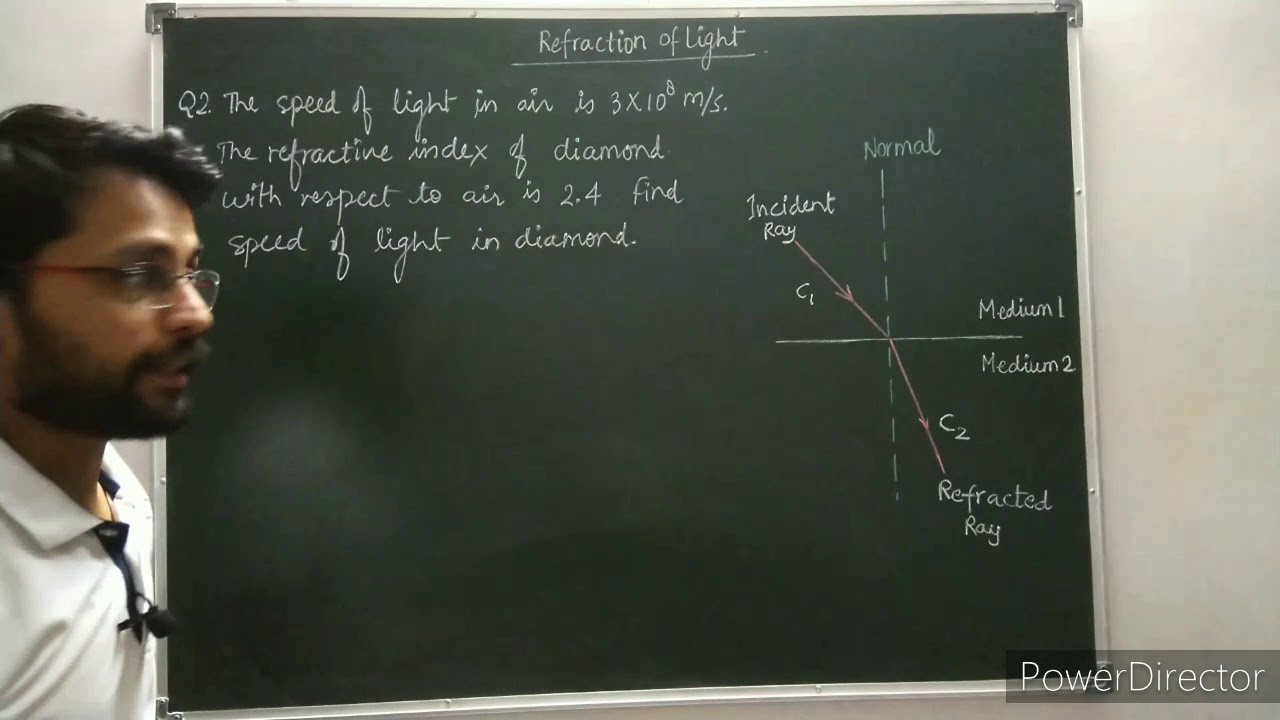 Refraction of Light
Q2. The speed of light in air is 3×10⁸ m/s.
The refractive index of diamond
with respect to air is 2.4 find
speed of light in diamond.
Normal
Incident
Ray
C₁
Medium 1
Medium 2
C₂
Refracted
Ray
PowerDirector